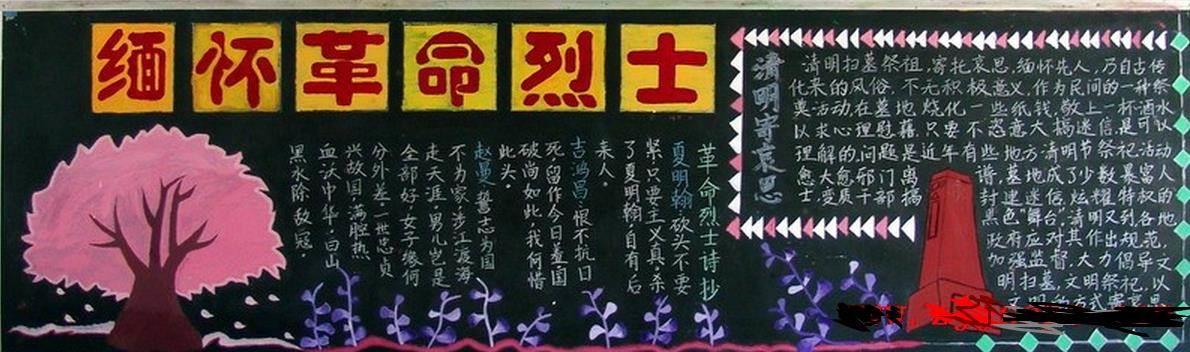 缅怀革命烈士
革命烈士诗抄
夏明翰 砍头不要
紧只要主义真。杀
了夏明翰,自有后
来人。
吉鸿昌:恨不抗日
死,留作今日羞国
破尚如此,我何惜
此头。
赵曼 誓志为国
不为家,涉江渡海
走天涯,男儿岂是
全部好,女子缘何
分外差。一世忠贞
兴故国,满腔热
血沃中华,白山
黑水除敌寇。
清明寄哀思
清明扫墓祭祖,寄托哀思,缅怀先人,乃自古传
化来的风俗,不无积极意义,作为民间的一种祭
奠活动,在墓地烧化一些纸钱,敬上一杯酒水
以求心理慰藉,只要不恣意大搞迷信,是可以
理解的,问题是近年有些地方清明节祭祀活动
愈大愈邪门离谱,墓地成了少数暴富人
士,变质干部搞封建迷信,炫耀特权的
黑色"舞台",清明又到各地
政府应对其作出规范,
加强监督,大力倡导文
明扫墓,文明祭祀,以
文明的方式寄哀思